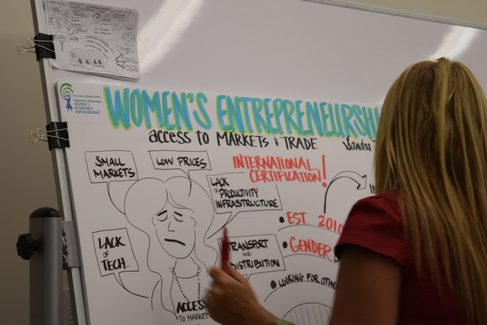 WOMEN'S ENTREPRENEURSHIP
ACCESS TO MARKETS & TRADE
SMALL
MARKETS
LOW PRICES
INTERNATIONAL
CERTIFICATION!
LACK
OF PRODUCTIVITY
INFRASTRUCTURE
• EST. 2010
• GENDER
LACK
OF
TECH.
TRANSPORT
AND
DISTRIBUTION
• LOOKING FOR
ACCESS
TO MARKET
WOMEN'S
ECONOMIC
EMPOWERMENT